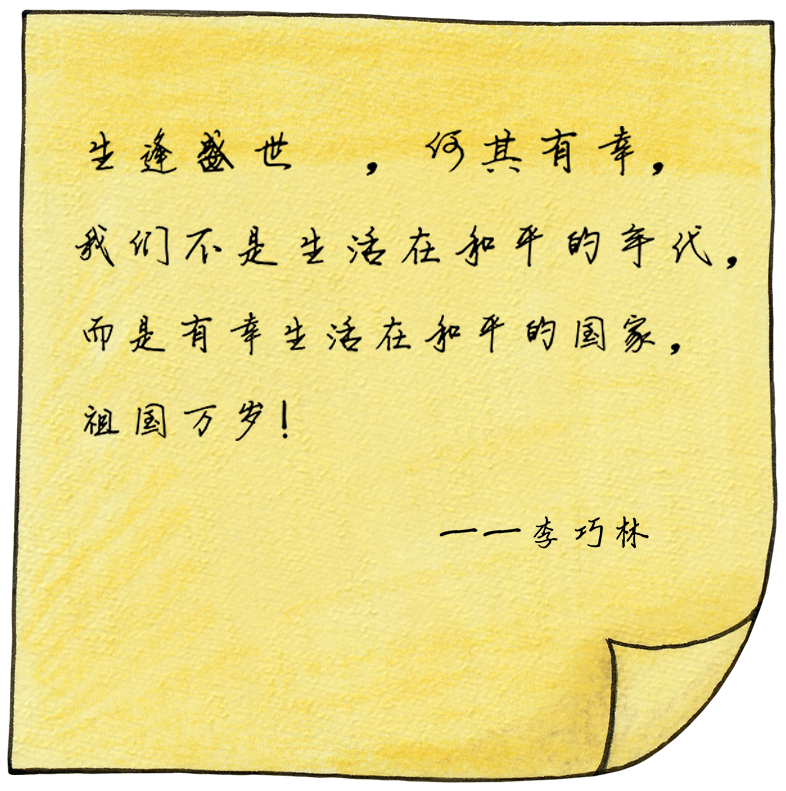 生逢盛世 ，何其有幸，
我们不是生活在和平的年代，
而是有幸生活在和平的国家，
祖国万岁！
——李巧林